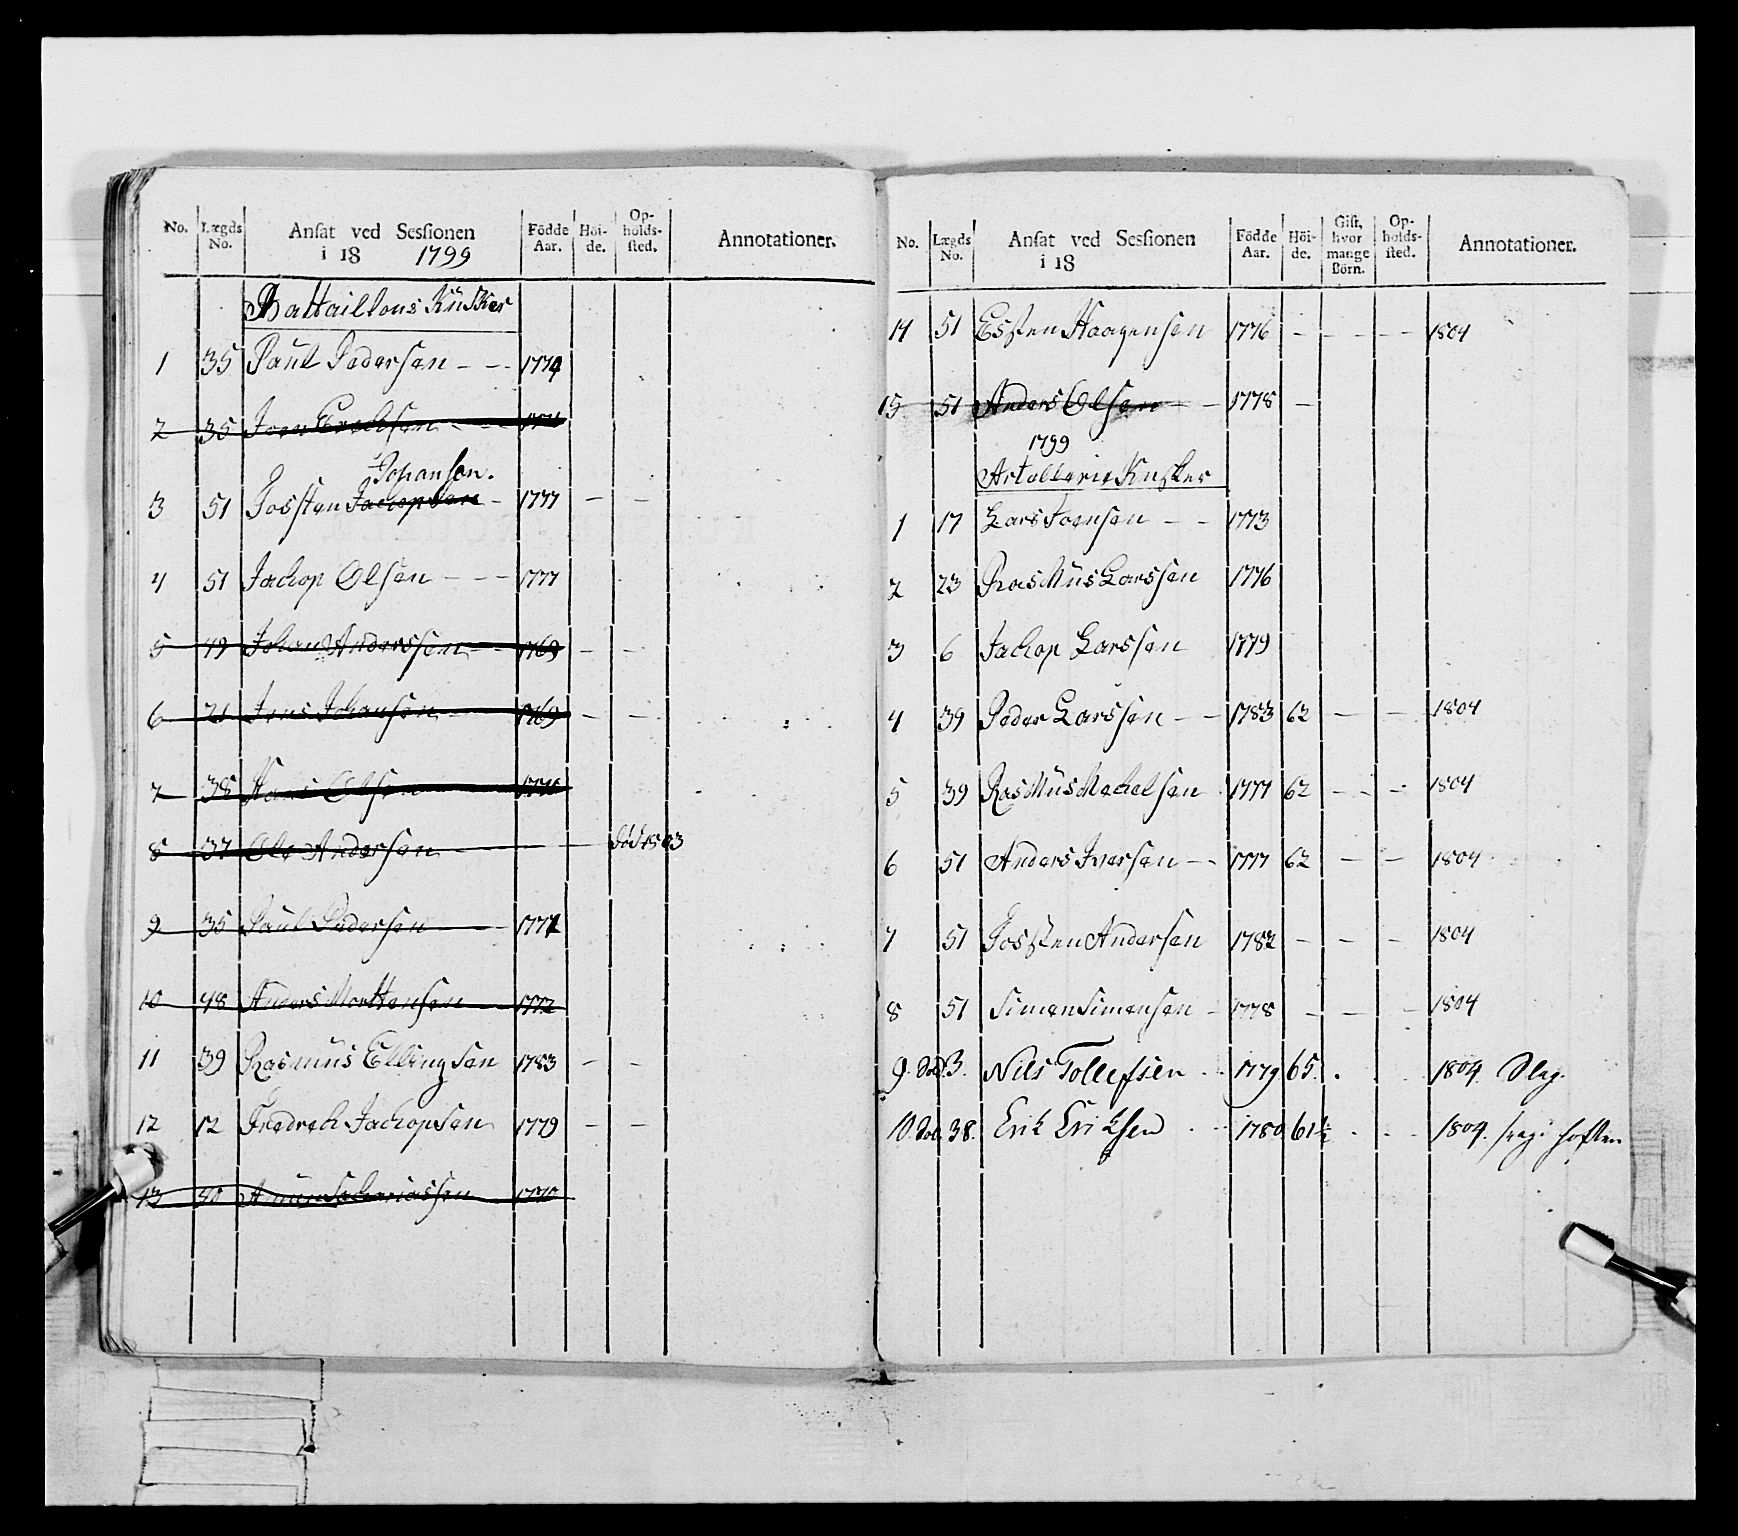 No. Lægds No. Ansat ved Sessionen i 18 1799 Födde Aar. Höi-de. Op-holds-sted. Annotationer.
Battaillons Küsker
1 35 Paül Pedersen - - - 1774
2 35 Joen Erichsen - - -
Johansen.
3 51 Jossten Jachopsen - 1777 - -
4 51 Jachop Olsen - - - 1777
5 49 Johan Anderssen - - 1769 - -
6 21 Jens Johansen - - 1769 - -
7 38 Hans Olsen
8 37 Ole Andersen - - - död 1803
9 35 Paul Pedersen - - 1774
10 48 Anders Morttensen - 1772
11 39 Rasmüs Ellingsen 1783 - -
12 12 Fredrech Jachopsen 1779 - -
13 40 1770
No. Lægds No. Ansat ved Sessionen i 18 Födde Aar. Höi-de. Gift, hvor mange Börn. Op-holds-sted. Annotationer.
14 51 Essten Haagensen 1776 - - - - 1804
15 51 Anders Olsen - - 1778 -
1799
Artollerie Kusker
1 17 Lars Joensen - - 1773
2 23 Rasmüs Larssen 1776
3 6 Jachop Larssen 1779
4 39 Peder Larssen - - 1783 62 - - 1804
5 39 Rasmüs Mechelsen 1777 62 - - - 1804
6 51 Anders Iversen - - 1777 62 - - 1804
7 51 Jossten Andersen 1782 - - - 1804
8 51 Simen Simensen - 1778 - - - 1804
9. Sold. 3. Nils Tollefsen - - 1779 65. 1804.
10. Sol. 38. Erik Eriksen - - 1780 61½ - - 1804.